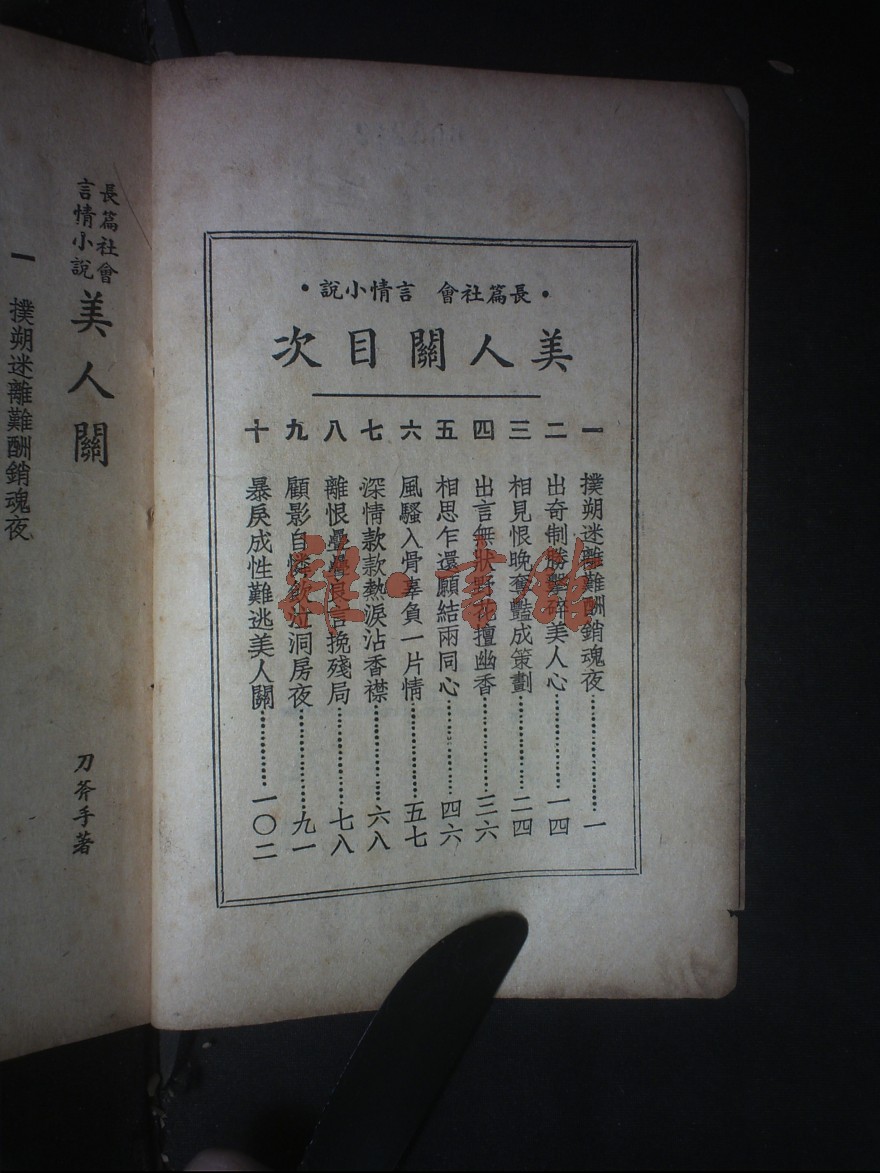 ・長篇社會 言情小說・
美人關目次
一 撲朔迷離難酬銷魂夜…………一
二 出奇制勝擊碎美人心…………一四
三 相見恨晚奪豔成策劃…………二四
四 出言無狀野花擅幽香…………三六
五 相思乍還願結兩同心…………四六
六 風騷入骨辜負一片情…………五七
七 深情款款熱淚沾香襟…………六八
八 離恨疊疊良言挽殘局…………七八
九 顧影自憐飲泣洞房夜…………九一
十 暴戾成性難逃美人關…………一〇二
雜·書館
長篇社會
言情小說
美人關
刀斧手著
一 撲朔迷離難酬銷魂夜